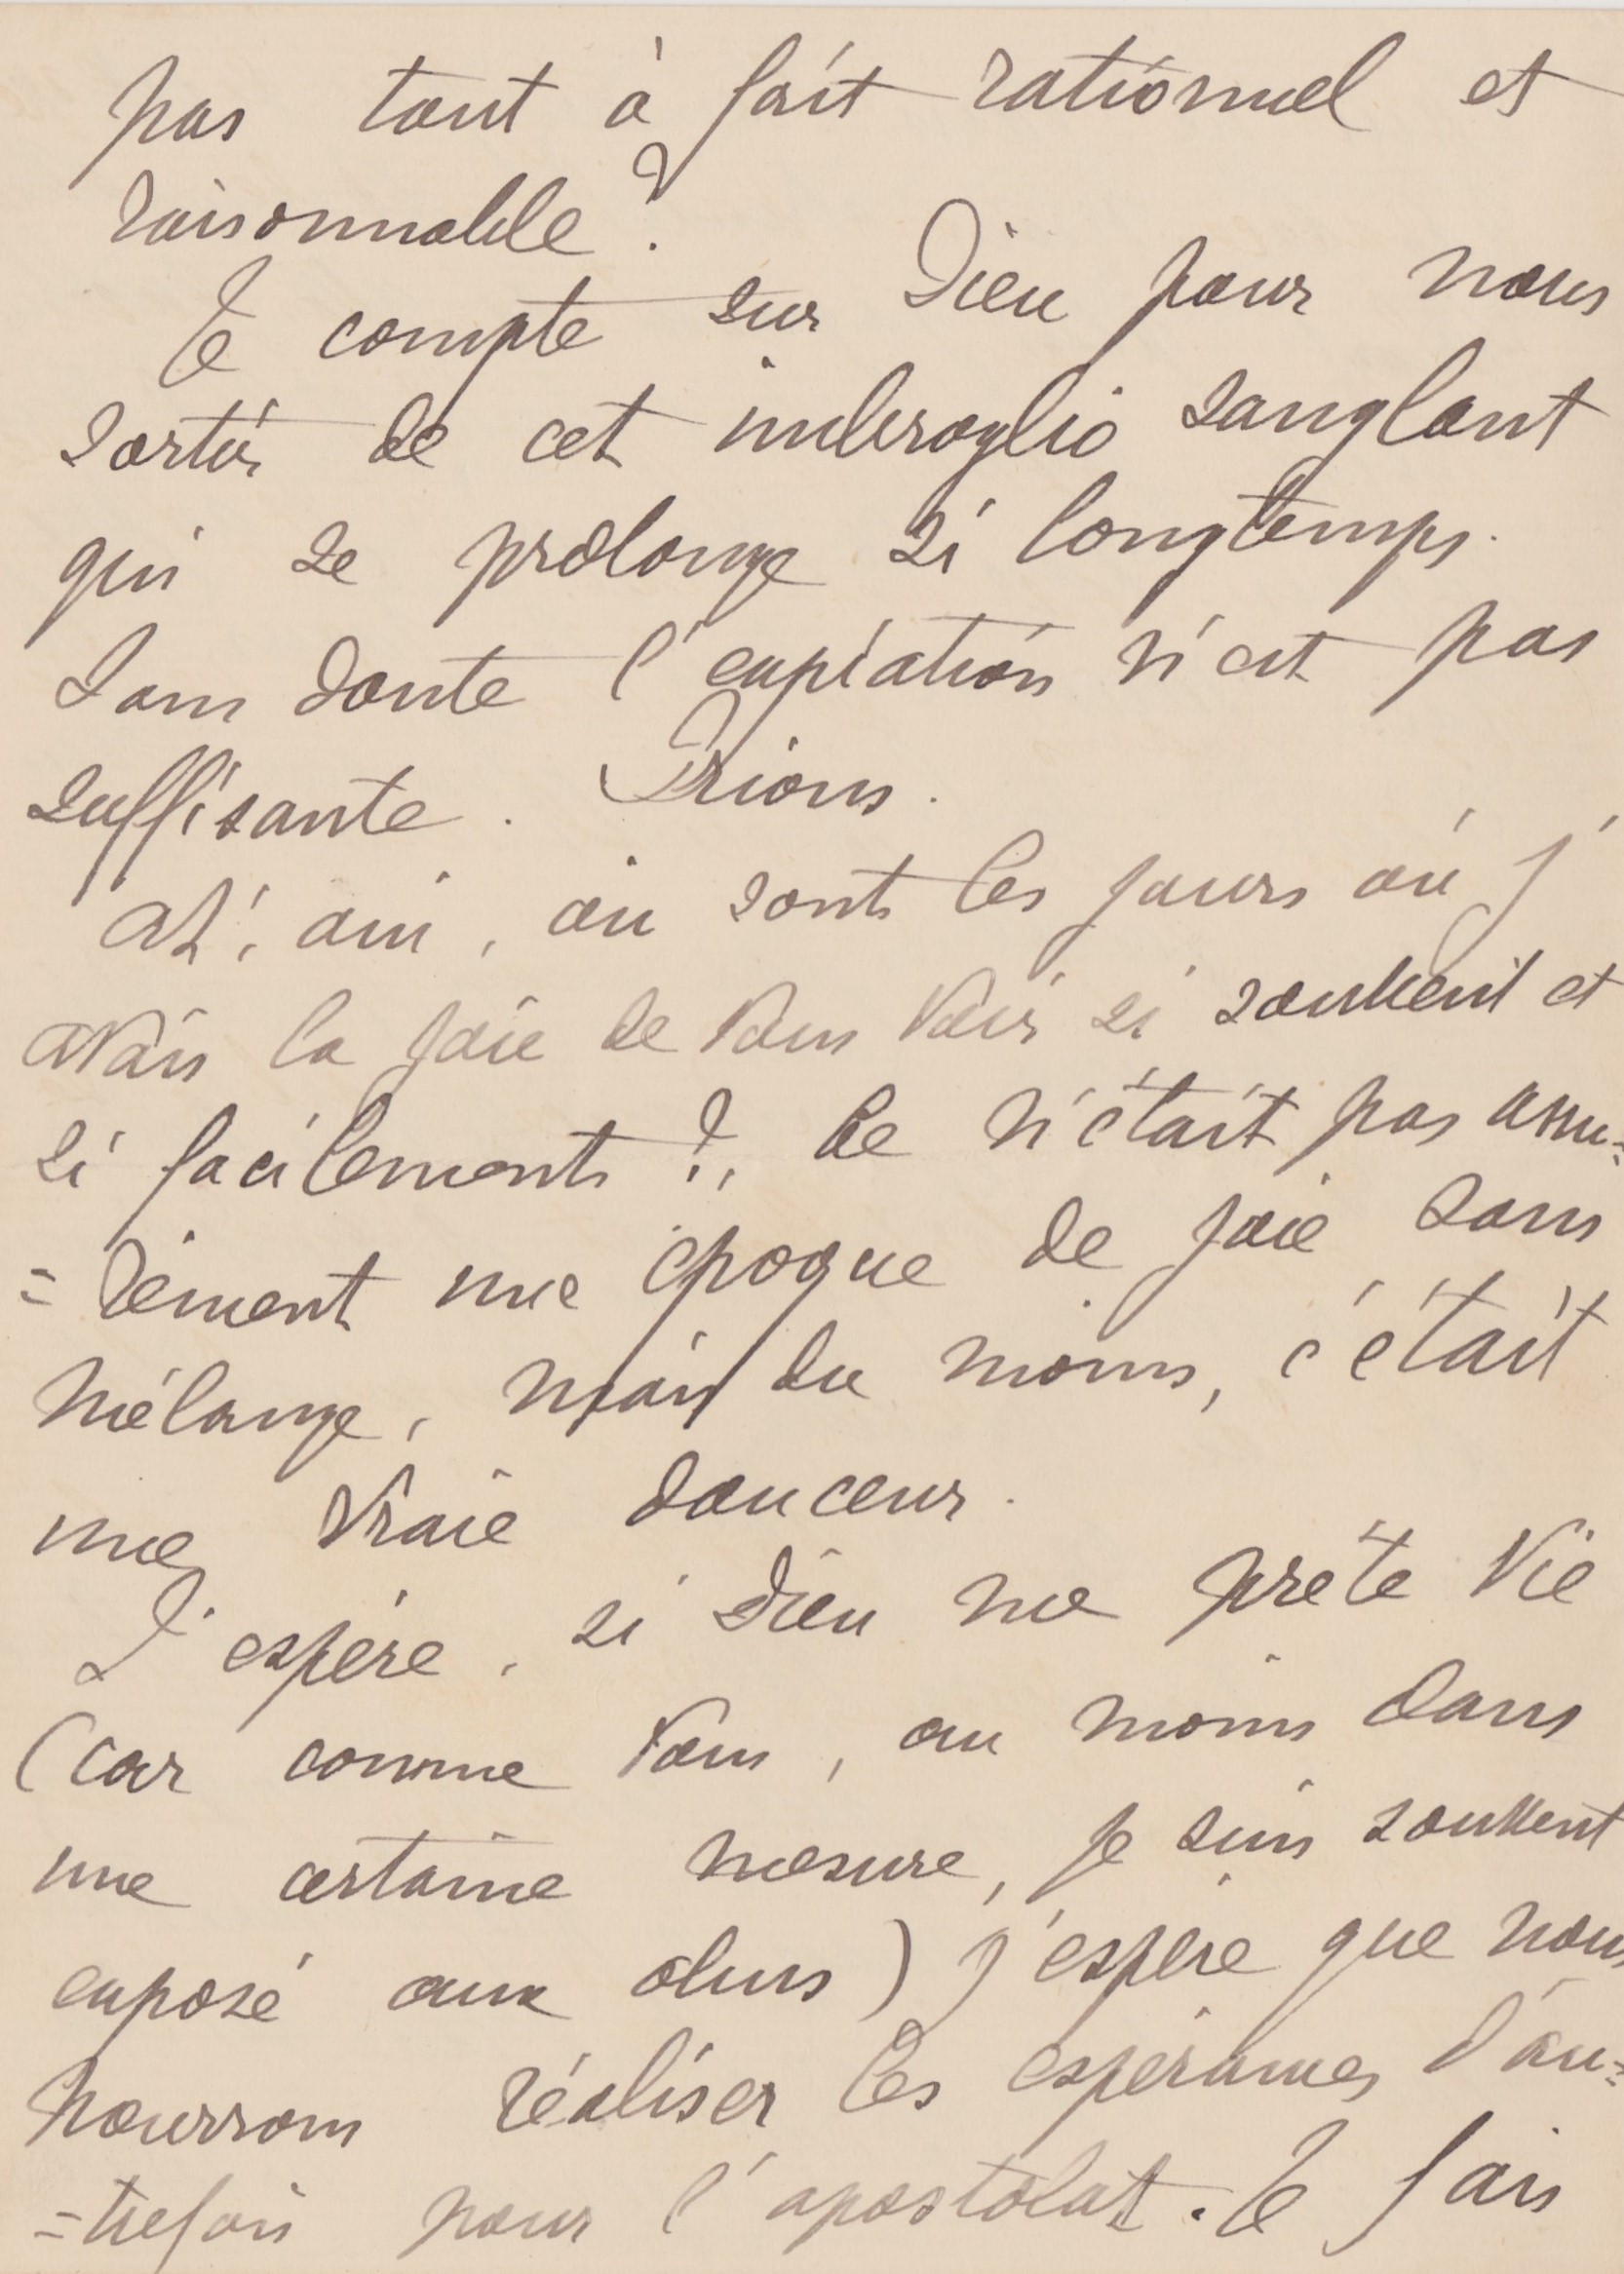 pas tout à fait rationnel et
raisonnable ?
Je compte sur Dieu pour nous
sortir de cet imbroglio sanglant
qui se prolonge si longtemps.
Sans doute l'expiation n'est pas
suffisante. Prions.
Ah ! oui, où sont les jours où j'
avais la joie de vous voir si souvent et
si facilement !! Ce n'était pas assu=
=rément une époque de joie sans
mélange, mais du moins, c'était
une vraie douceur.
J'espère, si Dieu me prête vie
(car comme vous, au moins dans
une certaine mesure, je suis souvent
exposé aux obus) j'espère que nous
pourrons réaliser les espérances d'au=
=trefois pour l'apostolat. Je fais